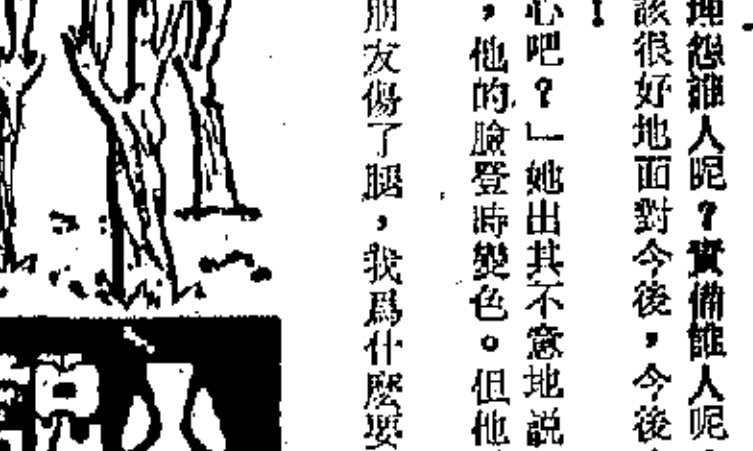 埋怨誰人呢？責備誰人呢
該很好地面對今後，今後
！
心吧？」她出其不意地說
，他的臉登時變色。但他
朋友傷了腿，我爲什麼要